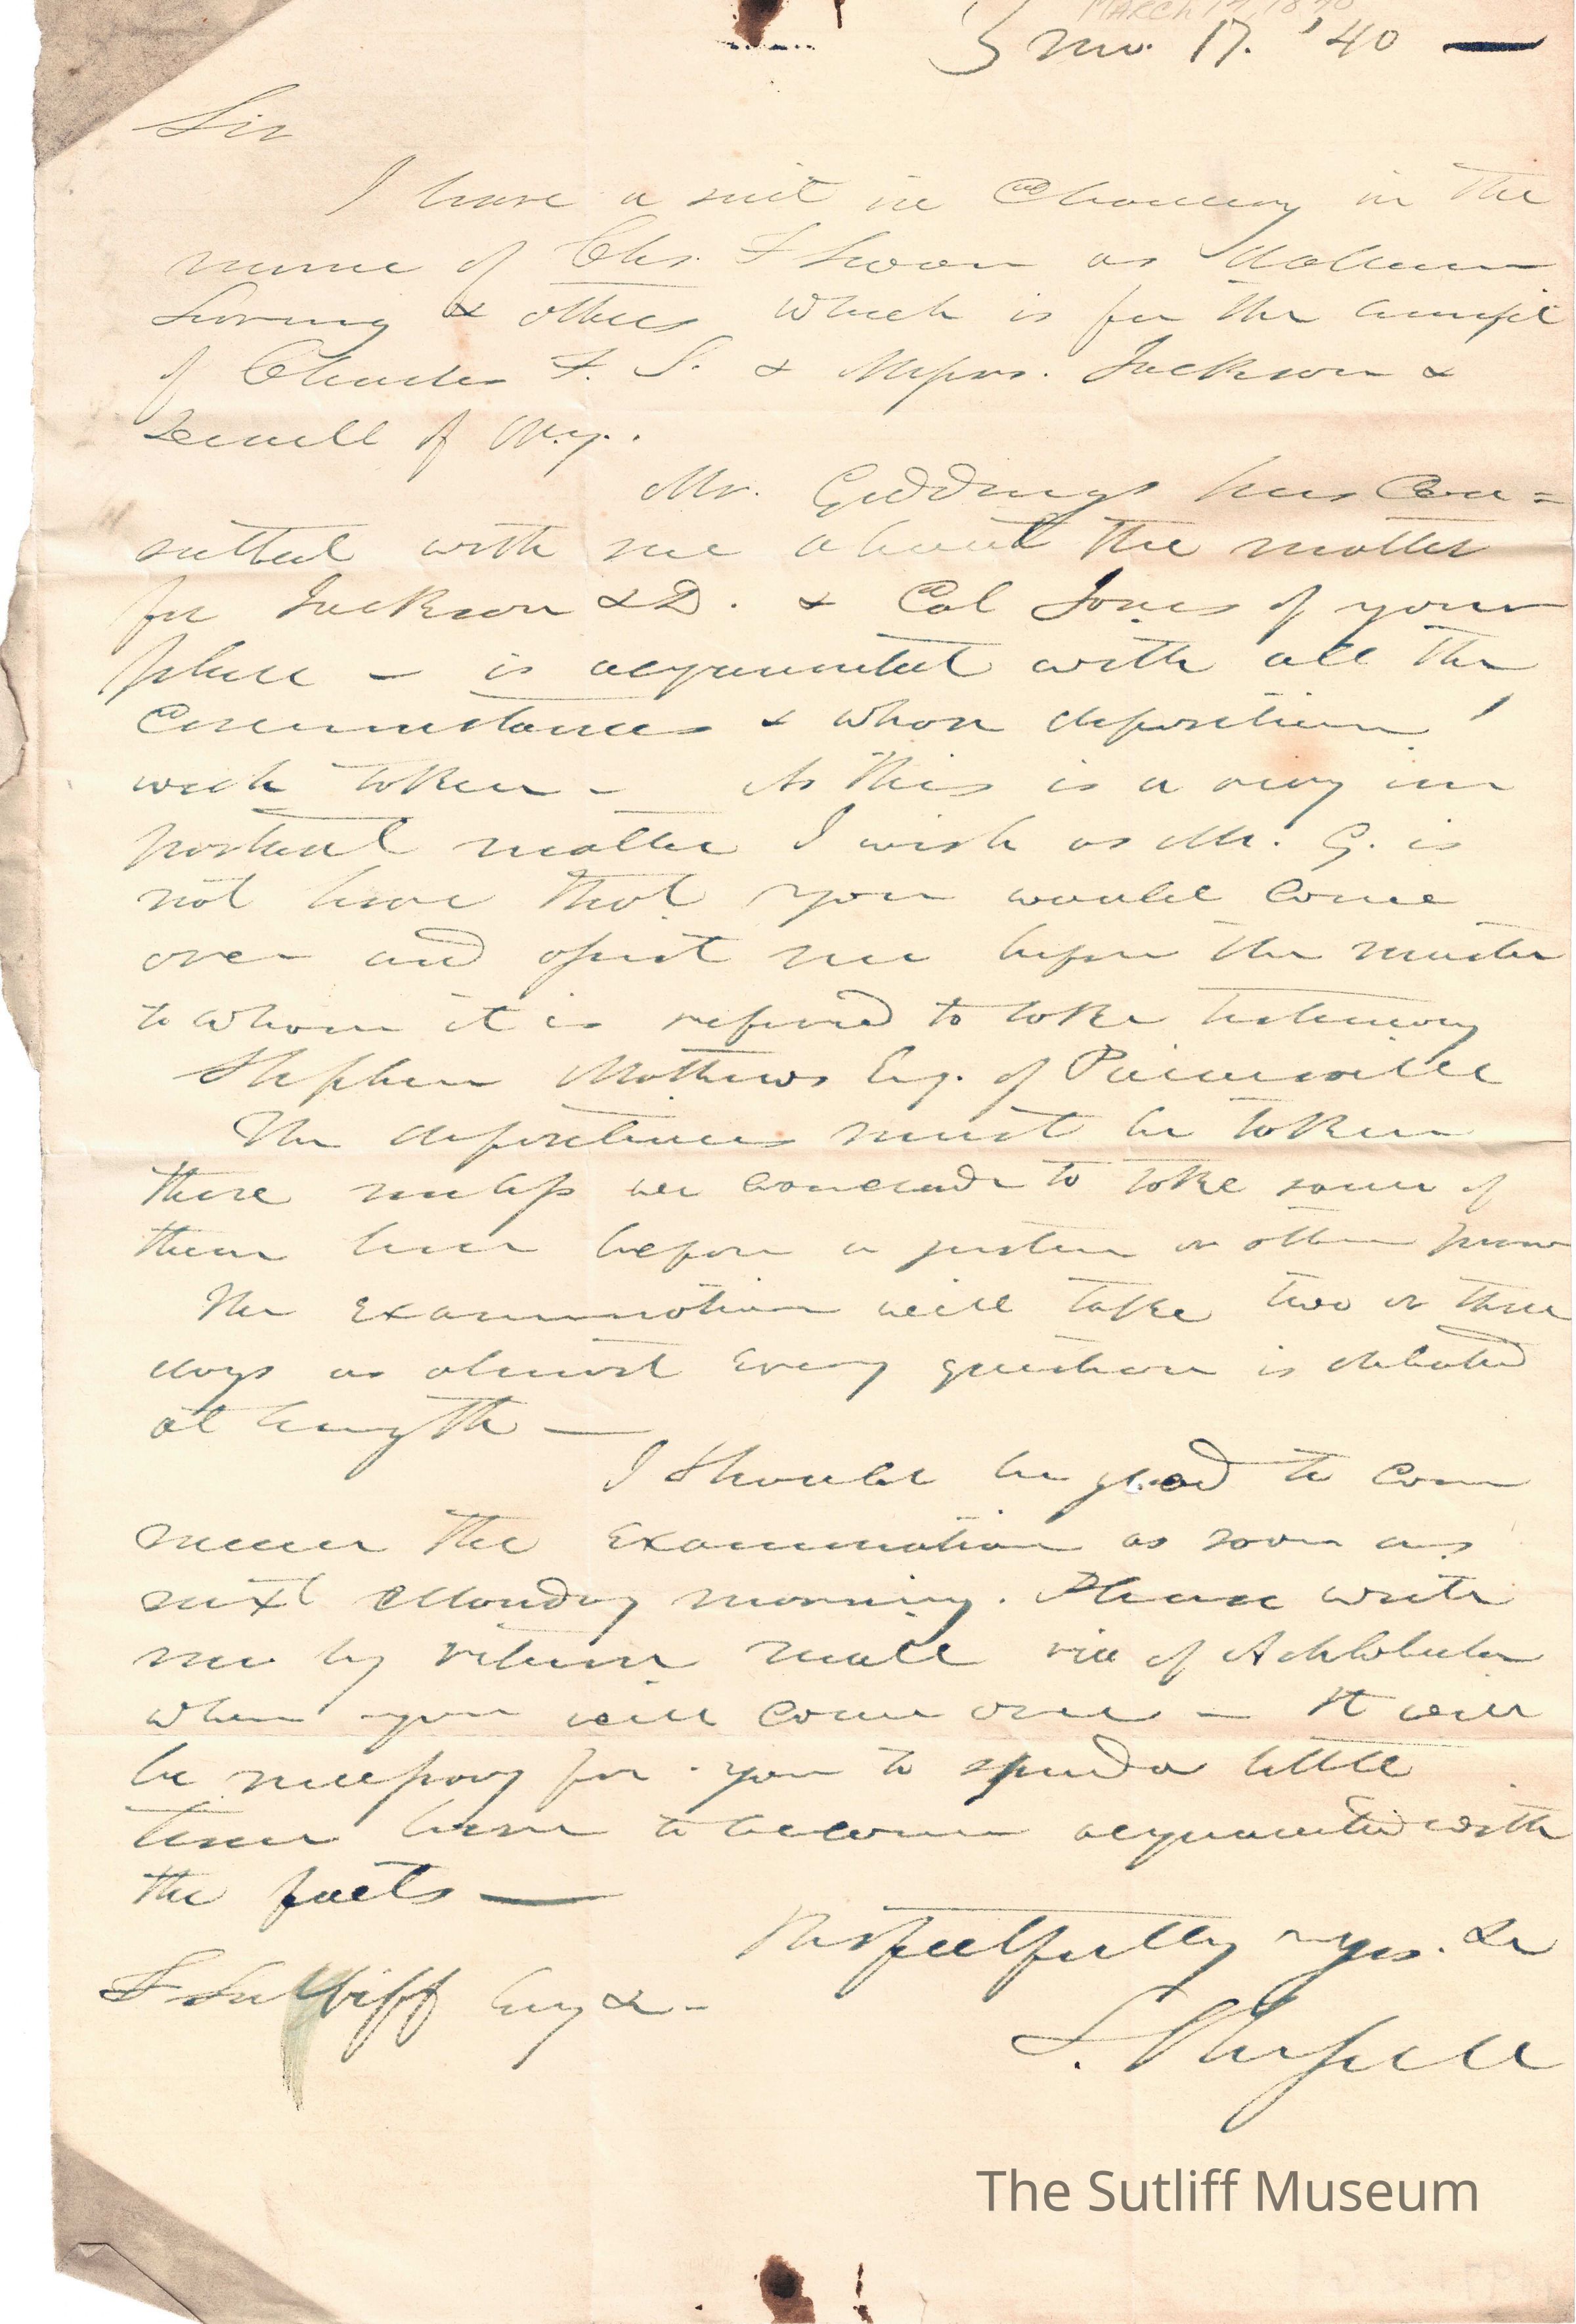 March 17, 1840
3 mo. 17. '40 —
Sir
I have a suit in Chancery in the
name of Chs. F Swan vs
Loring & others which is for the benefit
of Charles F. S. & Messrs. Jackson &
of N.y.
Mr. Giddings has con=
sulted with me about the matter
for Jackson & D. & Col Jones of your
place — is acquainted with all the
Circumstances & whose deposition I
wish taken — As this is a very im
portant matter I wish as Mr. G. is
not here that you would come
over and assist me before the master
to whom it is refered to take testimony
Stephen Mathews Esq. of Painesville
The depositions must be taken
there unless we conclude to take some of
them here before a justice or other
The Examination will take two or three
days as almost every question is debated
at length —
I should be glad to com
mence the Examination as soon as
next Monday morning. Please write
me by return mail via of Ashtabula
when you will come over — It will
be necessary for you to spend a little
time here to become acquainted with
the facts —
Respectfully yrs. &c
F Sutliff Esq &c —
S.
The Sutliff Museum